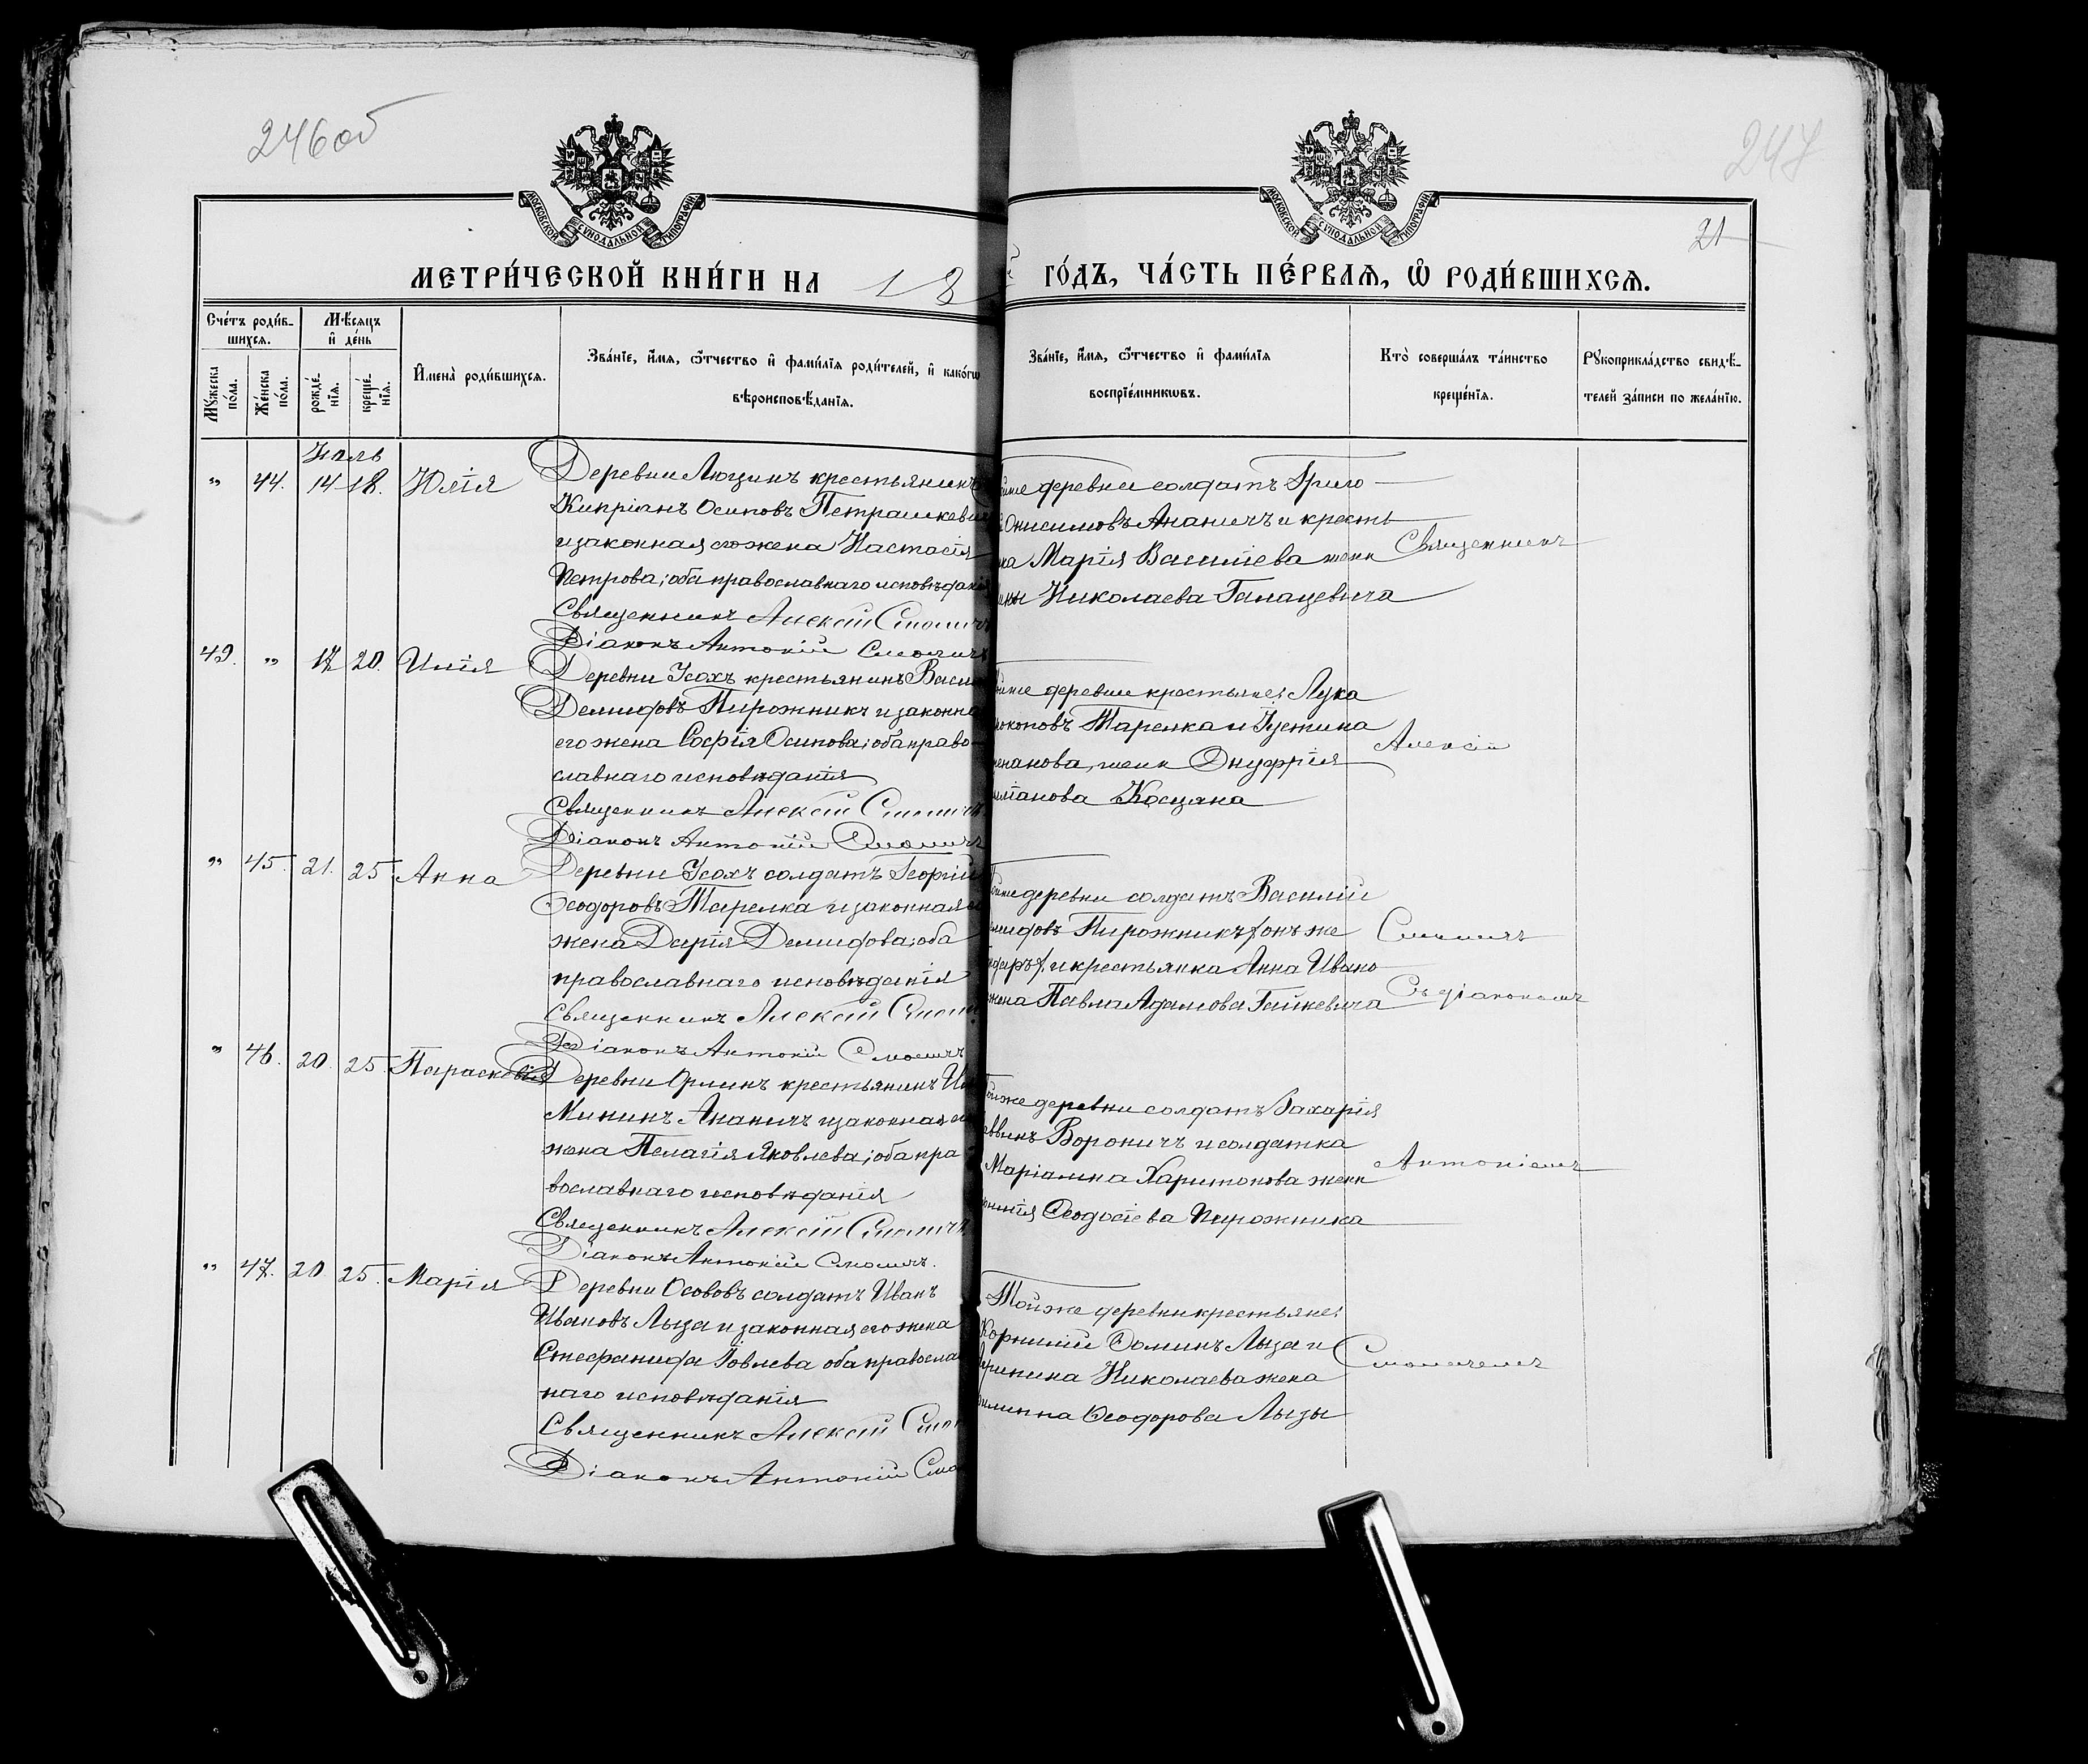 246об
247
21
МОСКОВСКОЙ СѴНОДАЛЬНОЙ ТИПОГРАФІИ
МОСКОВСКОЙ СѴНОДАЛЬНОЙ ТИПОГРАФІИ
МЕТРИ́ЧЕСКОЙ КНИ́ГИ НА 18
ГО́ДЪ, ЧА́СТЬ ПЕ́РВАѦ, Ѡ҆ РОДИ́ВШИХСѦ.
Сче́тъ роди́вшихсѧ.
Мѣ́сяцъ и҆ де́нь
Мꙋ́жеска по́ла.
Же́нска по́ла.
рожде́нїѧ.
креще́нїѧ.
И҆мена̀ роди́вшихсѧ.
Зва́нїе, и҆́мѧ, ѻ҆́тчество и҆ фами́лїѧ роди́телей, и҆ како́гѡ
вѣроисповѣ́данїѧ.
Зва́нїе, и҆́мѧ, ѻ҆́тчество и҆ фами́лїѧ
воспрїе́мникѡвъ.
Кто̀ соверша́лъ та́инство
креще́нїѧ.
Рꙋкоприкла́дство свидѣ́телей за́писи по жела́нїю.
Іюль
„ 44. 14 18. Юлія
Деревни Люзинъ крестьянинъ
Кипріанъ Осиповъ Петрашкевич
и законная его жена Настасія
Петрова; оба православнаго исповѣдані
Священникъ Алексій Смоличъ
Діаконъ Антоній Смоличъ
деревни солдатъ Григо
Онисимовъ Ананичъ и кресть
Марія Василіева жена
Николаева Ганацевича
Священникъ
49. „ 17 20. Илія
Деревни Усохъ крестьянинъ Васи
Демидовъ Пирожникъ и законна
его жена Софія Осипова; оба право
славнаго исповѣданія
Священникъ Алексій Смоличъ
Діаконъ Антоній Смоличъ
деревни крестьяне: Лука
Тарелка и Густина
жена Онуфрія
Косцяна
Алексій
„ 45. 21. 25 Анна
Деревни Усохъ солдатъ Георгій
Ѳеодоровъ Тарелка и законная е
жена Дарія Демидова; оба
православнаго исповѣданія
Священникъ Алексій Смоли
Діаконъ Антоній Смоличъ
деревни солдатъ Василій
Пирожникъ /онъ же
и крестьянка Анна Ивано
жена Павла Адамова Гайкевича
Смоличъ
Съ діакономъ
„ 46. 20. 25 Параскевія
Деревни Орлинъ крестьянинъ
Мининъ Ананичъ и законная е
жена Пелагія Яковлева; оба пра
вославнаго исповѣданія
Священникъ Алексій Смоличъ
Діаконъ Антоній Смоличъ.
деревни солдатъ Захарія
Вороничъ и солдатка
Маріанна Харитонова жена
Ѳеодосіева Пирожника
Антоніемъ
„ 47. 20 25. Марія
Деревни Осововъ солдатъ Иванъ
Ивановъ Лыза и законная его жена
Стефанида Іовлева оба правосла
наго исповѣданія
Священникъ Алексій Смол
Діаконъ Антоній Смо
Той же деревни крестьяне:
Корнилій Ѳоминъ Лыза и
Николаева жена
Ѳеодорова Лызы
Смоличемъ